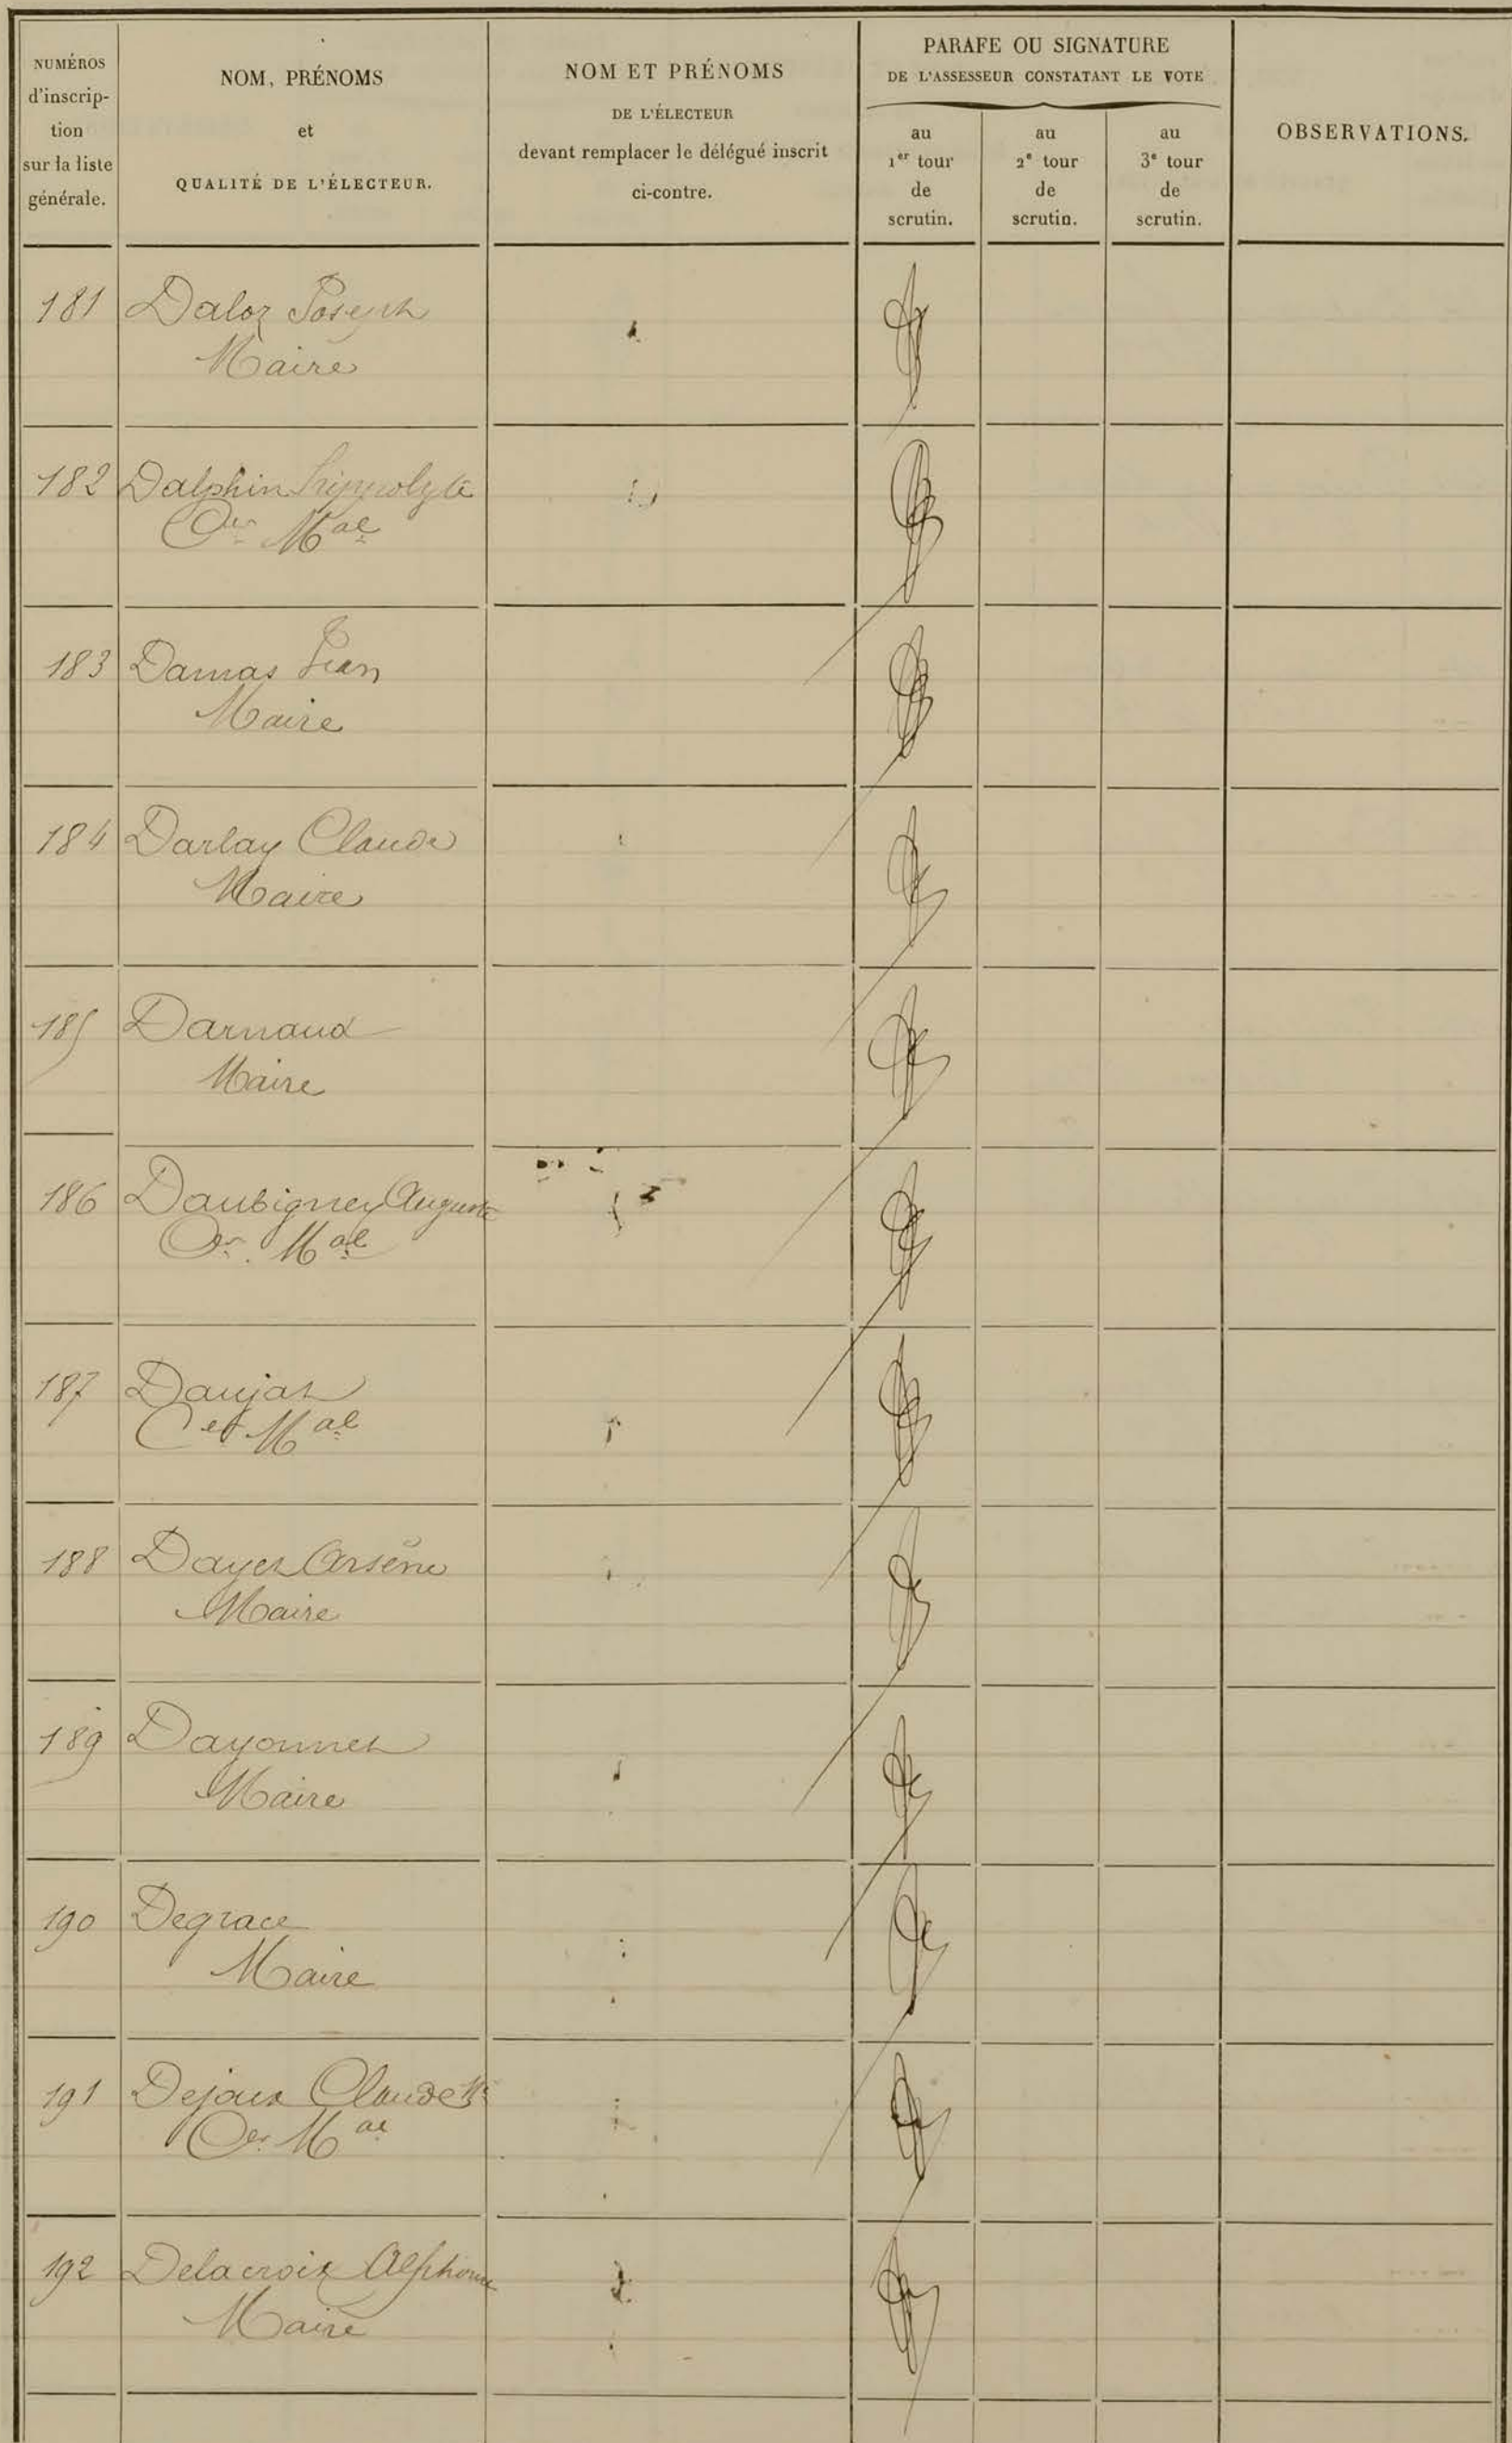 NUMÉROS
d'inscrip-
tion
sur la liste
générale.
NOM, PRÉNOMS
et
QUALITÉ DE L'ÉLECTEUR.
NOM ET PRÉNOMS
DE L'ÉLECTEUR
devant remplacer le délégué inscrit
ci-contre.
PARAFE OU SIGNATURE
DE L'ASSESSEUR CONSTATANT LE VOTE
au
1er tour
de
scrutin.
au
2e tour
de
scrutin.
au
3e tour
de
scrutin.
OBSERVATIONS.
181 Daloz Joseph
Maire
182 Dalphin hippolyte
Cer Mal
183 Damas Jean
Maire
184 Darlay Claude
Maire
185 Darnaud
Maire
186 Daubigney Auguste
Cer Mal
187 Daujat
Cer Mal
188 Dayet Arsène
Maire
189 Dayonnet
Maire
190 Degrace
Maire
191 Dejoux Claude
Cer Mal
192 Delacroix Alphonse
Maire